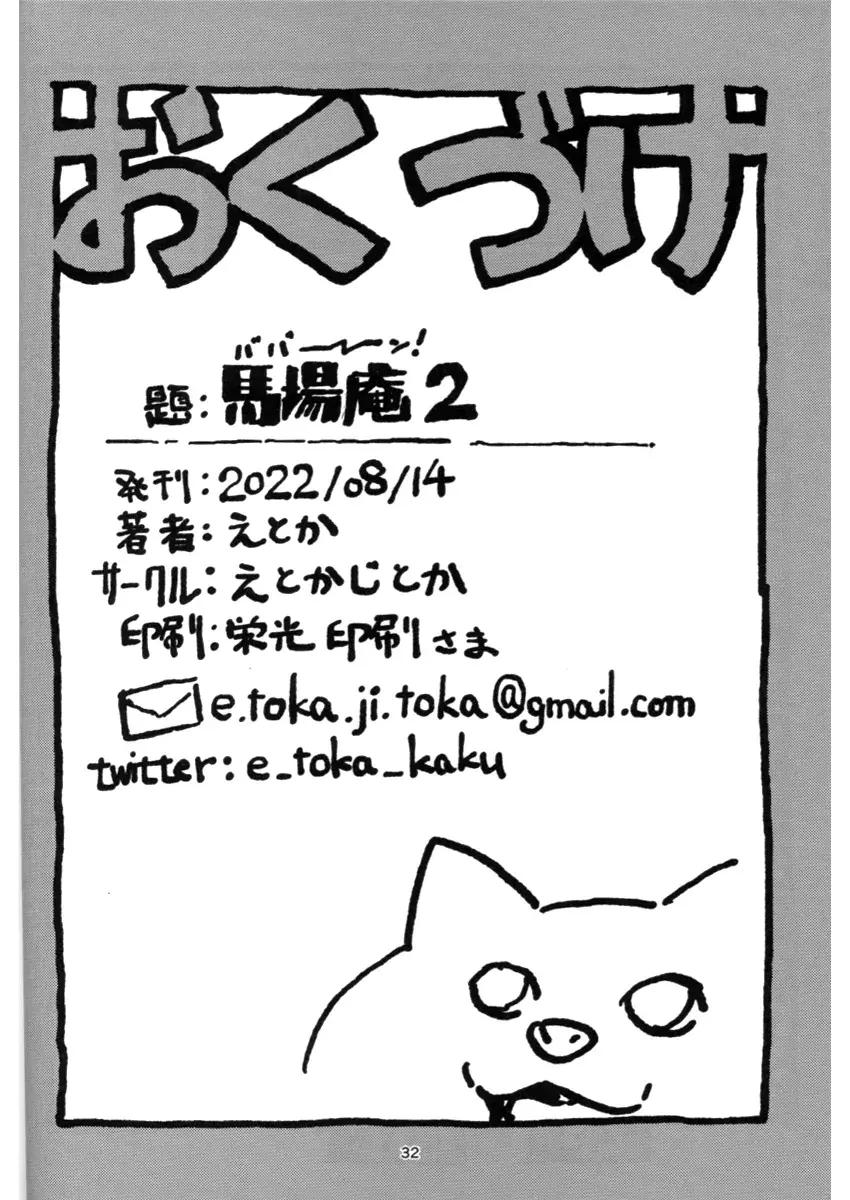 おくづけ
ババーーン!
題:馬場庵2
発刊:2022/08/14
著者:えとか
サークル:えとかじとか
印刷:栄光印刷さま
e.toka.ji.toka@gmail.com
twitter:e_toka_kaku
32